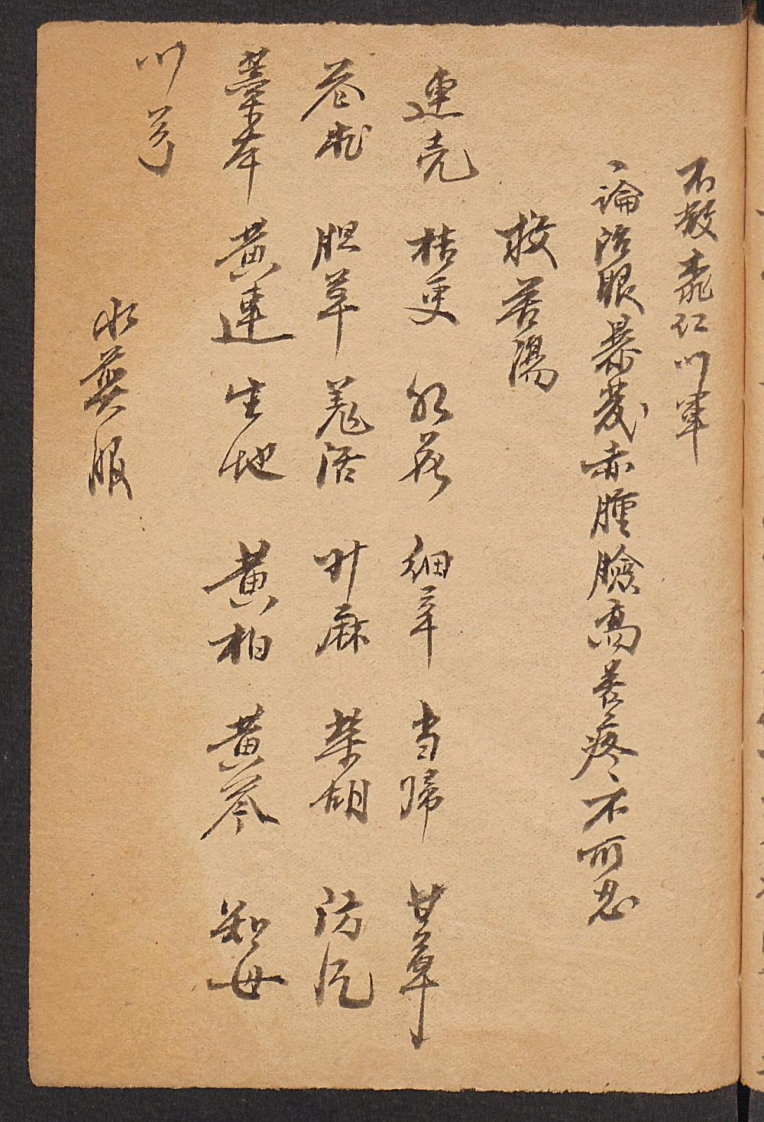 不效蕤仁川軍
一論治眼暴發赤腫臉高苦疼不可忍
救苦湯
連壳 桔更 紅花 細辛 当歸 甘草
苍朮 胆草 羌活 升麻 柴胡 防風
藁本 黃連 生地 黃柏 黃芩 知母
川芎
水煎服